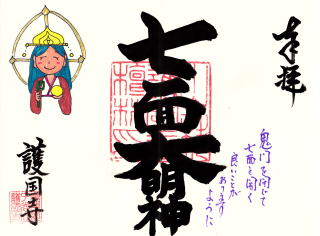 奉拝
鬼門を閉じて
七面を開く
良いことが
ありますように
七面大明神
護国寺